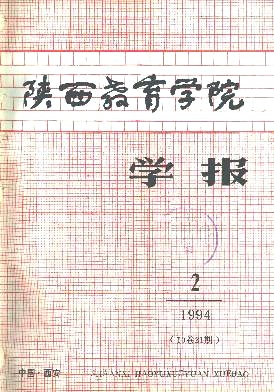 陕西教育学院
学报
2
1994
中国·西安
SHANXI JIAOYUXUEYUAN XUEBAO